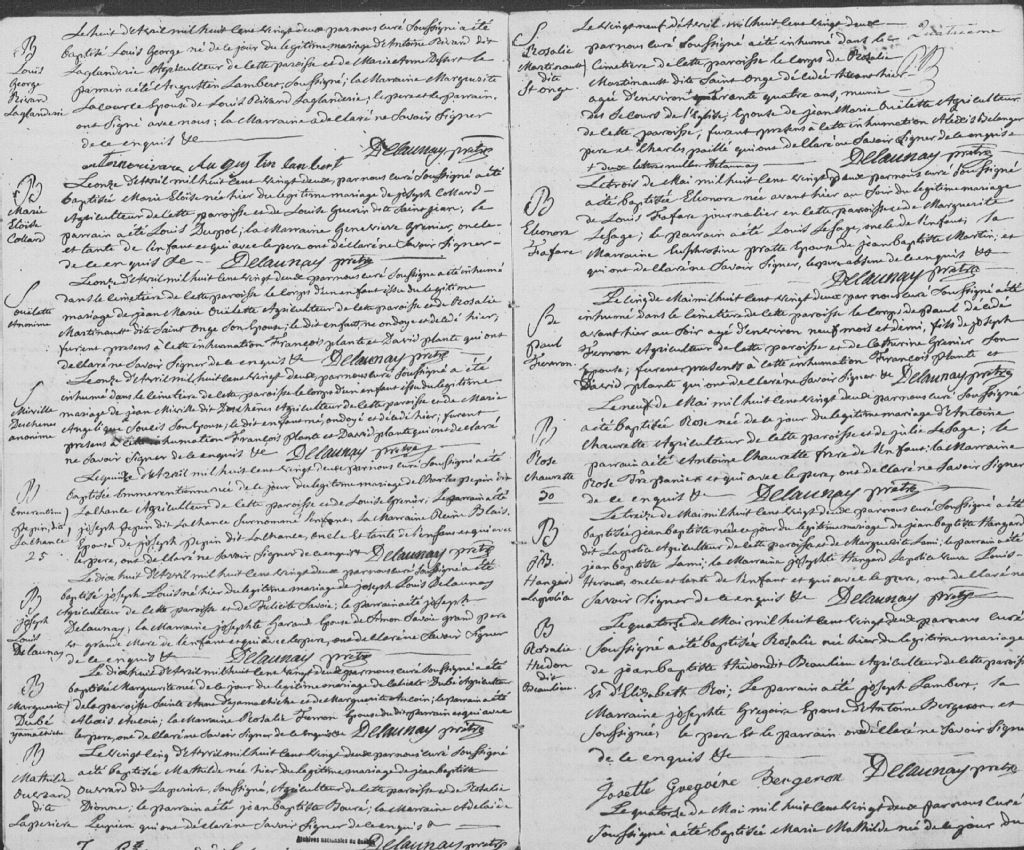 B
Louis
George
Rivard
Laglanderie
Le huit d'Avril mil huit cent vingt deux par nous curé Soussigné a été
baptisé Louis George né de ce jour du legitime mariage d'Antoine Rivard dit
Laglanderie Agriculteur de cette paroisse et de Marie Anne
parrain a été Augustin Lambert, Soussigné; la Marraine Marguerite
Lacourse Epouse de Louis Rivard Laglanderie; le pere et le parrain
ont Signé avec nous; la Marraine a declaré ne Savoir Signer
de ce enquis &c
Augustin lambert Delaunay ptre
B
Marie
Eloïse
Collard
Le onze d'Avril mil huit cent vingt deux, par nous curé Soussigné a été
baptisée Marie Eloïse née hier du legitime mariage de joseph Collard
Agriculteur de cette paroisse et de Louise Guerin dite Saint jean; le
parrain a été Louis; la Marraine Genevieve Grenier, oncle
et tante de l'enfant et qui avec le pere ont declaré ne Savoir Signer
de ce enquis &c Delaunay ptre
S
Ouilette
Anonime
Le onze d'Avril mil huit cent vingt deux par nous curé Soussigné a été inhumé
dans le cimetiere de cette paroisse le corps d'un enfant issu du legitime
mariage de jean Marie Ouilette Agriculteur de cette paroisse et de Rosalie
Martinault dite Saint Onge Son Epouse; le dit enfant, né ondoyé et décédé hier;
furent présens à cette inhumation François plante et David plante qui ont
declaré ne Savoir Signer de ce enquis &c Delaunay ptre
S
Miville
Duchene
anonime
Le onze d'Avril mil huit cent vingt deux, par nous curé Soussigné a été
inhumé dans le cimetiere de cette paroisse le corps d'un enfant issu du legitime
mariage de jean Miville dit Duschêne Agriculteur de cette paroisse et de Marie
Angelique Soucis Son Epouse; le dit enfant né, ondoyé et décédé hier; furent
présens à cette inhumation François Plante et David plante qui ont declaré
ne Savoir Signer de ce enquis &c Delaunay ptre
B
Emerentienne
Pepin dit
Lachance
25
Le quinze d'Avril mil huit cent vingt deux par nous curé Soussigné a été
baptisée Emmerentienne née de ce jour du legitime mariage de Charles Pepin dit
Lachance Agriculteur de cette paroisse et de Louise Grenier; Le parrain a été
joseph Pepin dit Lachance Surnommé; la Marraine Reine Blais
Epouse de joseph Pepin dit Lachance, oncle et tante de l'enfant et qui avec
le pere, ont declaré ne Savoir Signer de ce enquis Delaunay ptre
B
joseph
Louis
Delaunay
Le dix huit d'Avril mil huit cent vingt deux par nous curé Soussigné a été
baptisé joseph Louis né hier du legitime mariage de joseph Louis Delaunay
Agriculteur de cette paroisse et de Felicité Savoie; le parrain a été joseph
Delaunay; la Marraine josephte Epouse de Simon Savoie grand pere
et grande Mere de l'enfant et qui avec le pere, ont declaré ne Savoir Signer
de ce enquis &c Delaunay ptre
B
Marguerite
Dubé
yamachiche
Le dix huit d'Avril mil huit cent vingt deux par nous curé Soussigné a été
baptisée Marguerite née de ce jour du legitime mariage de Dubé Agriculteur
de la paroisse Sainte Anne d'yamachiche et de Marguerite Aucoin; le parrain a été
Alexis Aucoin; la Marraine Rosalie Ferron Epouse du dit parrain et qui avec
le pere, ont declaré ne Savoir Signer de ce enquis &c Delaunay ptre
B
Mathilde
Ouvrard
dite
Laperiere
Le vingt cinq d'Avril mil huit cent vingt deux par nous curé Soussigné
a été baptisée Mathilde née hier du legitime mariage de jean baptiste
Ouvrard dit Laperiere, Soussigné, Agriculteur de cette paroisse et de Rosalie
Dionne; le parrain a été jean baptiste; la Marraine Adelaïde
Lupien qui ont declaré ne Savoir Signer de ce enquis &c
Archives nationales du Québec
Delaunay ptre
S
Rosalie
Martinault
dite
St onge
Le vingt neuf d'Avril, mil huit cent vingt deux
par nous curé Soussigné a été inhumé dans le
Cimetiere de cette paroisse le corps de Rosalie
Martinault dite Saint Onge décédée avant hier
agée d'environ quarante quatre ans, munie
des Secours de l'Eglise; Epouse de jean Marie Ouilette Agriculteur
de cette paroisse; furent présens à cette inhumation Alexis Belanger
pere et Charles paillé qui ont declaré ne Savoir Signer de ce enquis
+ deux lettres nulles Delaunay Delaunay ptre
B
Elionore
Lafare
Le trois de Mai mil huit cent vingt deux par nous curé Soussigné
a été baptisée Elionore née avant hier au Soir du legitime mariage
de Louis Lafare journalier en cette paroisse et de Marguerite
Lesage; le parrain a été Louis Lesage, oncle de l'enfant; la
Marraine Euphrosine pratte Epouse de jean baptiste Martin; et
qui ont declaré ne Savoir Signer, le pere absent de ce enquis &c
Delaunay ptre
S de
paul
Ferron
Le cinq de Mai mil huit cent vingt deux par nous curé Soussigné a été
inhumé dans le cimetiere de cette paroisse le corps de Paul décédé
avant hier au Soir agé d'environ neuf mois et demi, fils de joseph
Ferron Agriculteur de cette paroisse et de Catherine Grenier Son
Epouse; furent présens à cette inhumation François Plante et
David plante qui ont declaré ne Savoir Signer &c Delaunay ptre
B
Rose
Chaurette
30
Le neuf de Mai mil huit cent vingt deux par nous curé Soussigné
a été baptisée Rose née de ce jour du legitime mariage d'Antoine
Chaurette Agriculteur de cette paroisse et de julie Lesage; le
parrain a été Antoine Chaurette frere de l'enfant; la Marraine
Rose et qui avec le pere, ont declaré ne Savoir Signer
de ce enquis &c Delaunay ptre
B
jB.
Hangard
Lapolia
Le treize de Mai mil huit cent vingt deux par nous curé Soussigné a été
baptisé jean baptiste né de ce jour du legitime mariage de jean baptiste Hangard
dit Agriculteur de cette paroisse et de Marguerite Lami; le parrain a été
jean baptiste Lami; la Marraine josephte Hangard
Heroux, oncle et tante de l'enfant et qui avec le pere, ont declaré ne
Savoir Signer de ce enquis &c Delaunay ptre
B
Rosalie
Hudon
dit
Beaulieu
Le quatorze de Mai mil huit cent vingt deux par nous curé
Soussigné a été baptisée Rosalie née hier du legitime mariage
de jean baptiste Hudon dit Beaulieu Agriculteur de cette paroisse
et d'Elizabeth Roi; Le parrain a été joseph Lambert; la
Marraine josephte Gregoire Epouse d'Antoine Bergeron et
Soussignée; le pere et le parrain ont declaré ne Savoir Signer
de ce enquis &c
Josette Gregoire Bergeron Delaunay ptre
Le quatorze de Mai mil huit cent vingt deux par nous curé
Soussigné a été baptisée Marie Mathilde née de ce jour du